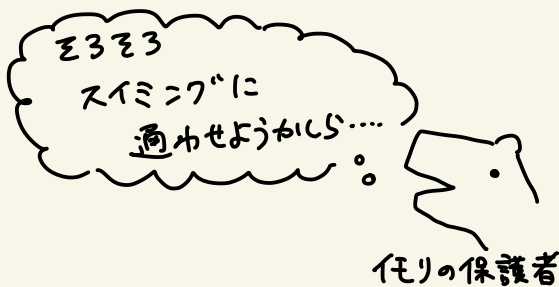 そろそろ
スイミングに
適わせようかしら‥‥
イモリの保護者